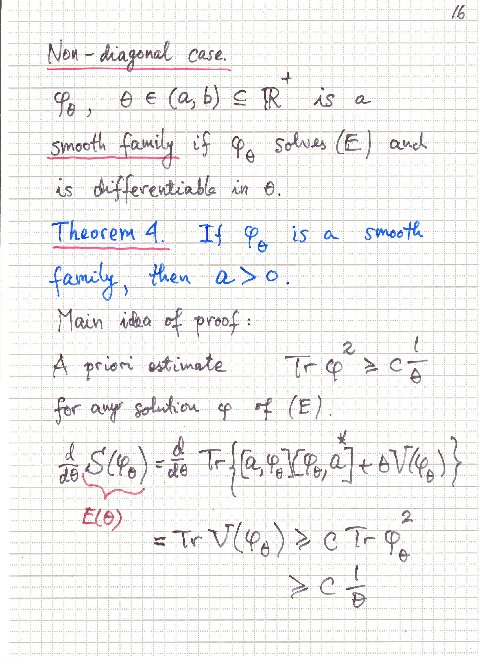 16
Non-diagonal case.
φ_θ, θ ∈ (a, b) ⊆ ℝ⁺ is a
smooth family if φ_θ solves (E) and
is differentiable in θ.
Theorem 4. If φ_θ is a smooth
family, then a > 0.
Main idea of proof:
A priori estimate Tr φ² ≥ C 1/θ
for any solution φ of (E).
d/dθ S(φ_θ) = d/dθ Tr{[a, φ_θ][φ_θ, a*] + θV(φ_θ)}
E(θ)
= Tr V(φ_θ) ≥ C Tr φ_θ²
≥ C 1/θ